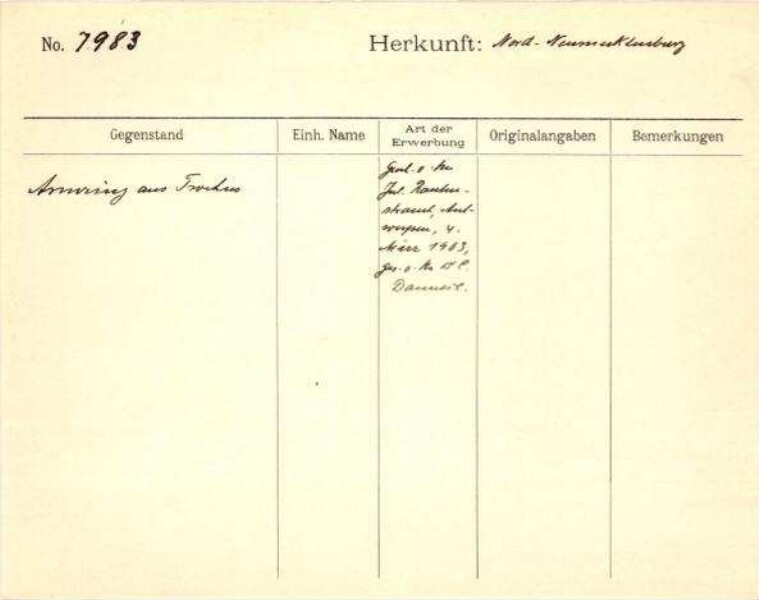 No. 7983
Herkunft: Nord-Neumecklenburg
Gegenstand
Einh. Name
Art der
Erwerbung
Originalangaben
Bemerkungen
Armring aus Trochus
Jul. Rauten-
strauch, Ant-
werpen, 4.
März 1903,
ges. v. Hn D C.
Danneil.